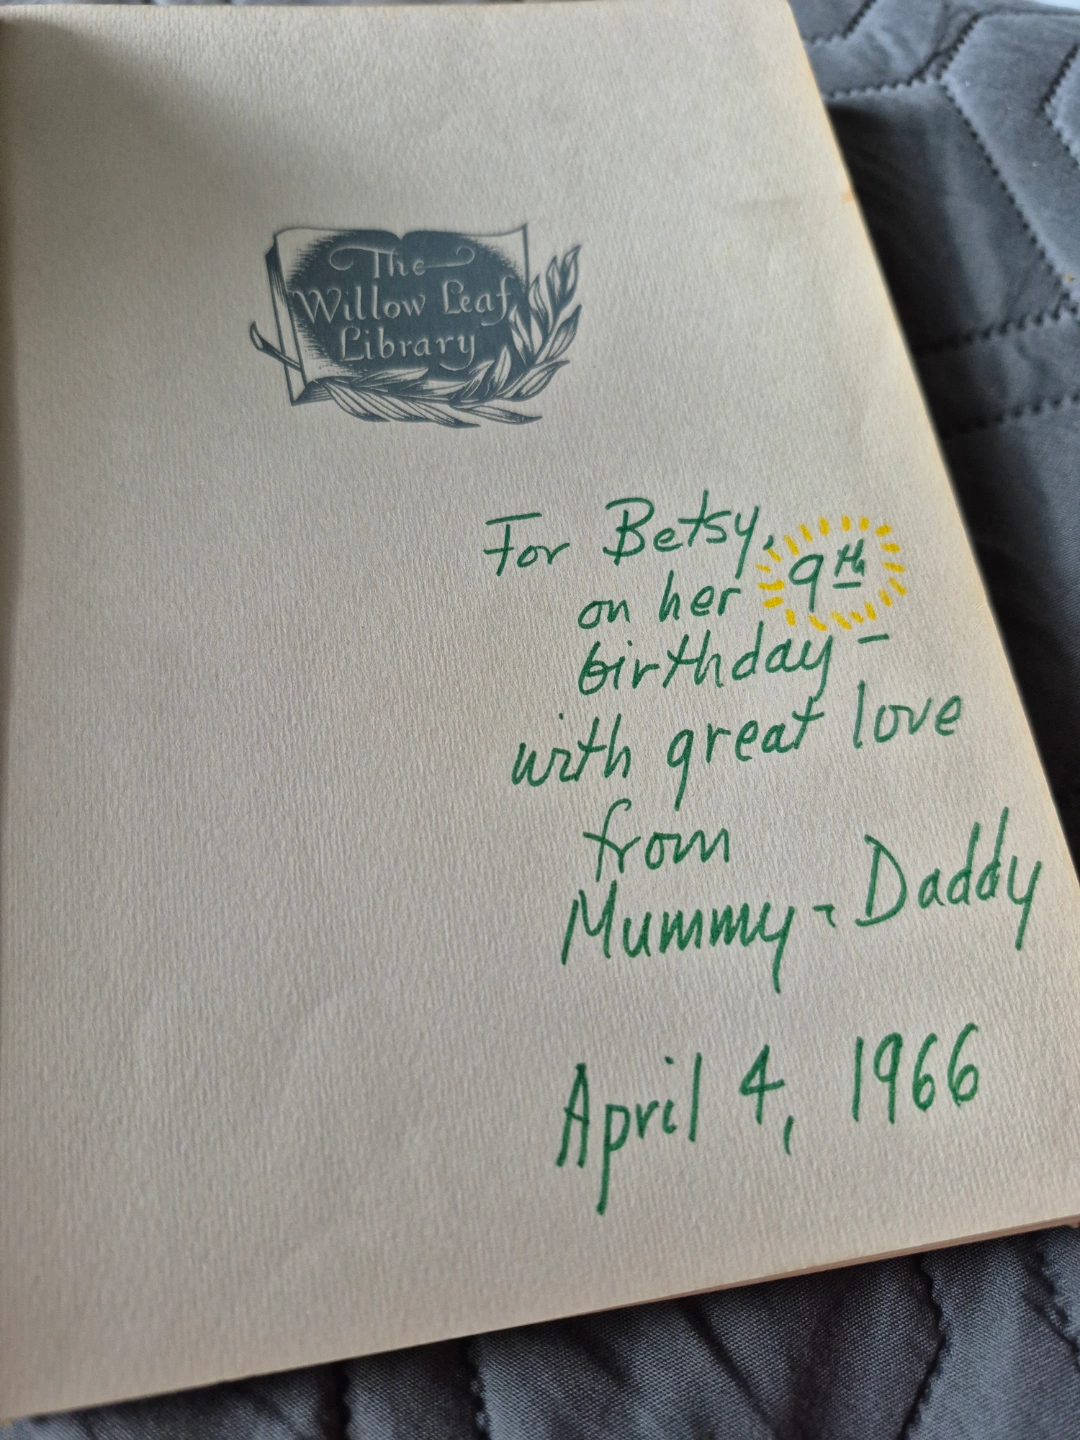 The
Willow Leaf
Library
For Betsy,
on her 9th
birthday –
with great love
from
Mummy - Daddy
April 4, 1966